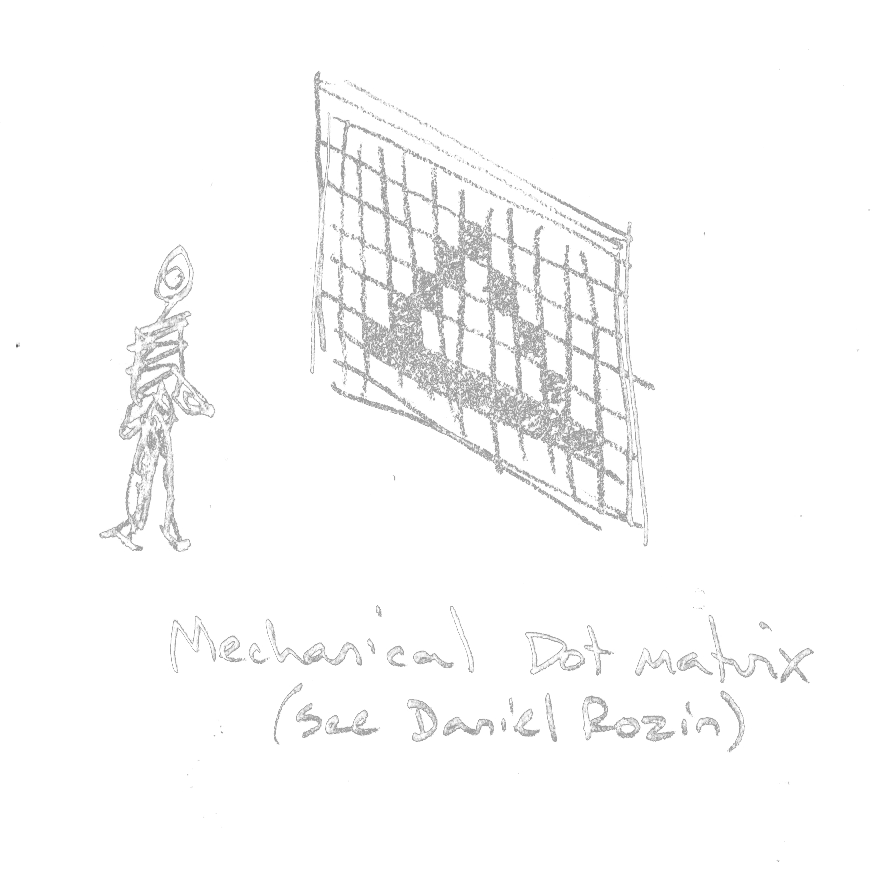 Mechanical Dot matrix
(see Daniel Rozin)